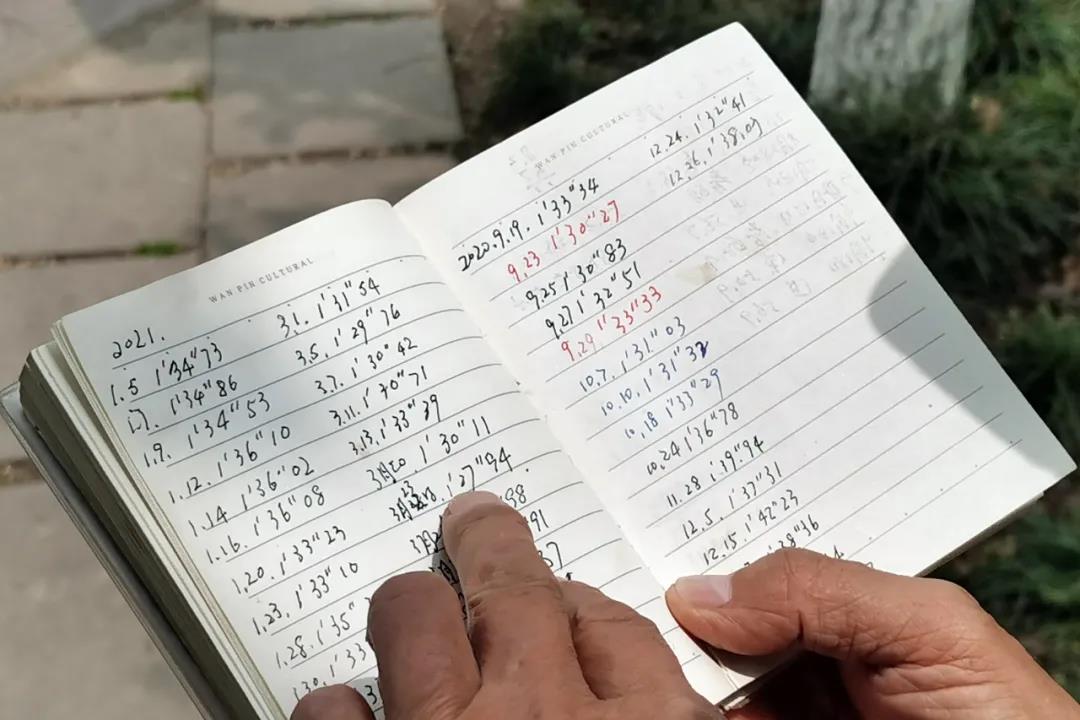 WAN PIN CULTURAL
2021.
1.5 1'34"73
1.7. 1'34"86
1.9. 1'34"53
1.12. 1'36"10
1.14 1'36"02
1.16. 1'36"08
1.20. 1'33"23
1.23. 1'33"10
1.28. 1'35"
1'33
3.1. 1'31"54
3.5. 1'29"76
3.7. 1'30"42
3.11. 1'30"71
3.13. 1'33"39
3月20. 1'30"11
1'27"94
98
91
37
WAN PIN CULTURAL
2020.9.9. 1'33"34
9.23 1'30"27
9.25 1'30"83
9.27 1'32"51
9.29. 1'33"33
10.7. 1'31"03
10.10. 1'31"32
10.18 1'33"29
10.24 1'36"78
11.28 1'39"94
12.5. 1'37"31
12.15. 1'42"23
12.24. 1'32"41
12.26. 1'38.09